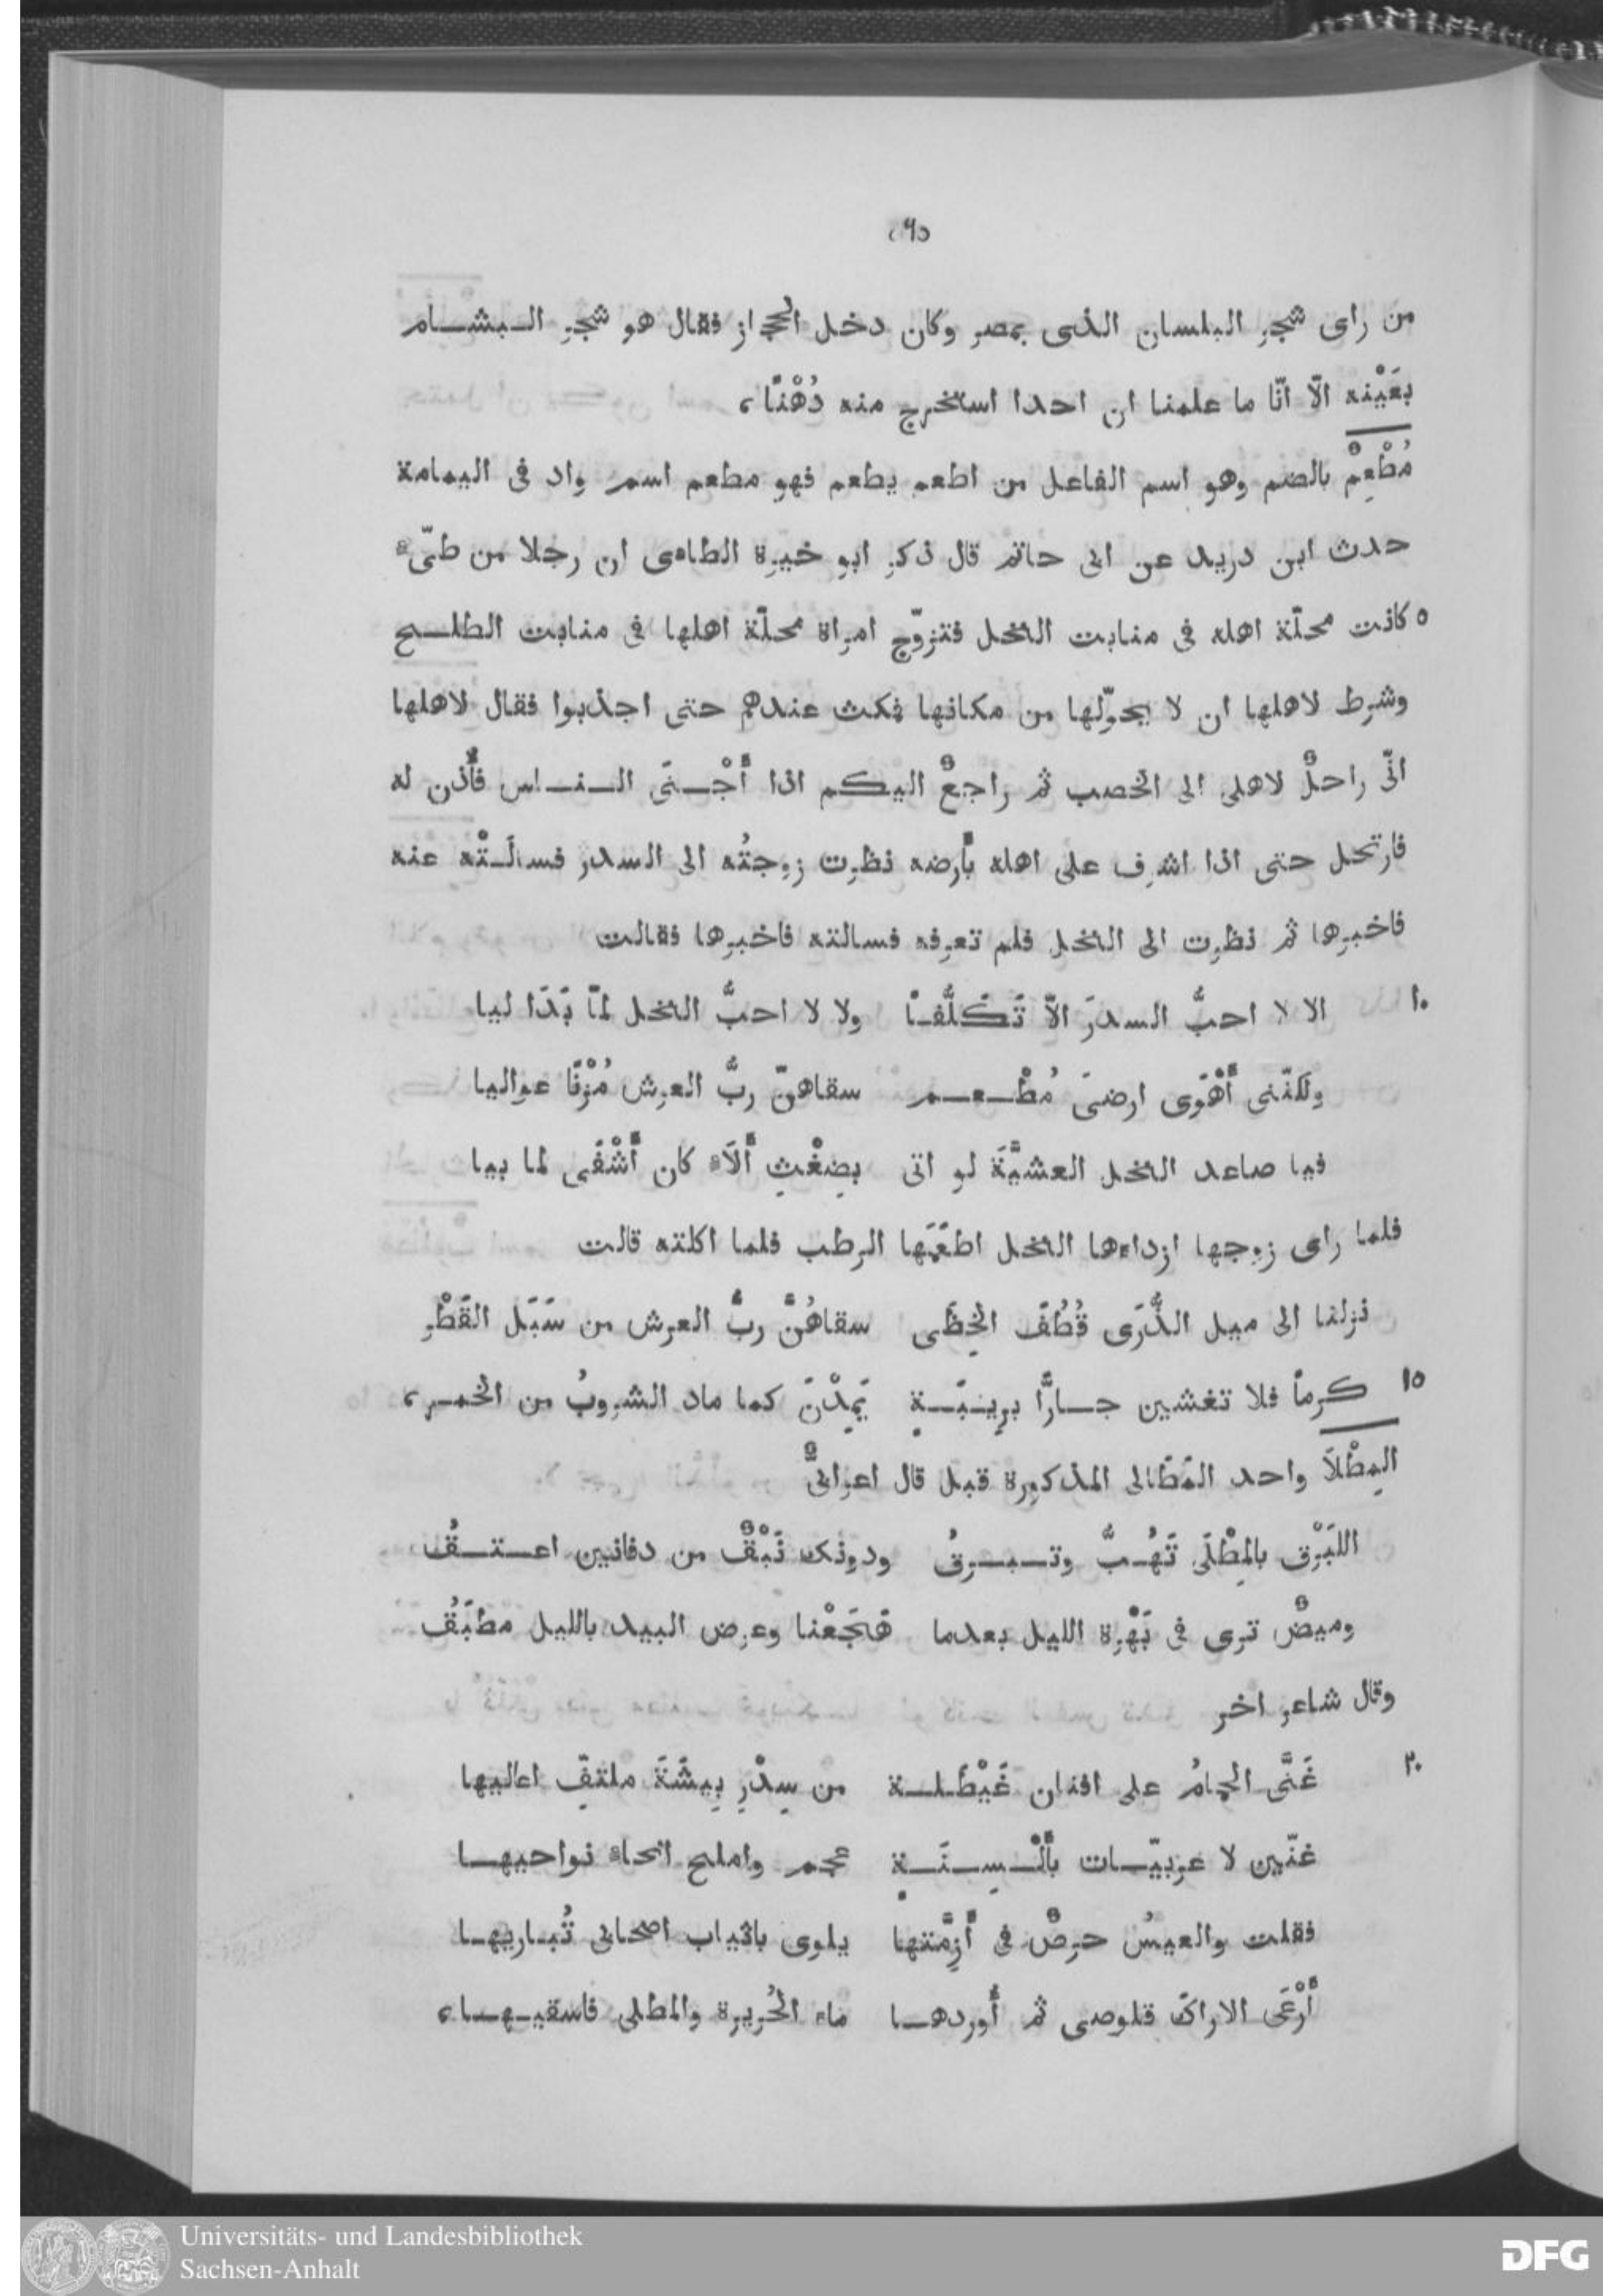 من راى شجر البلسان الذى بمصر وكان دخل الحجاز فقال هو شجر البشام
بعَيْنه الّا انّا ما علمنا ان احدا استخرج منه دُهْنًا،
مُطْعِمٌ بالضم وهو اسم الفاعل من اطعم يطعم فهو مطعم اسم واد فى اليمامة
حدث ابن دريد عن ابى حاتم قال ذكر ابو خيرة الطاءى ان رجلا من طىّء
٥ كانت محلّة اهله فى منابت النخل فتزوّج امراة محلّة اهلها فى منابت الطلح
وشرط لاهلها ان لا يحوّلها من مكانها فمكث عندهم حتى اجذبوا فقال لاهلها
انّى راحلٌ لاهلى الى الخصب ثم راجعٌ اليكم اذا أَجْنَى الناس فأُذن له
فارتحل حتى اذا اشرف على اهله بأرضه نظرت زوجتُه الى السدر فسالَتْه عنه
فاخبرها ثم نظرت الى النخل فلم تعرفه فسالته فاخبرها فقالت
١٠ الا لا احبُّ السدرَ الّا تَكَلُّفًا ولا لا احبُّ النخل لمّا بَدَا ليا
ولكنّنى أَهْوَى ارضىَ مُطْعم سقاهنّ ربُّ العرش مُزْنًا عواليا
فيا صاعد النخل العشيَّةَ لو اتى بضِغْثِ أَلَاء كان أَشْفَى لما بيا
فلما راى زوجها ازداءها النخل اطعَمَها الرطب فلما اكلته قالت
نزلنا الى ميل الذُّرَى قُطُفَ الخِطَى سقاهُنَّ ربُّ العرش من سَبَل القَطْر
١٥ كرماً فلا تغشين جارًّا برِيبَةٍ يَمِدْنَ كما ماد الشروبُ من الخمر،
المِطْلَا واحد المَطَالى المذكورة قبل قال اعرابىٌّ
اللبَرْق بالمِطْلَى تَهُبُّ وتبرقُ ودونك نَبْقٌ من دفانين اعتقُ
وميضٌ ترى فى بَهْرة الليل بعدما هَجَعْنا وعرض البيد بالليل مطبَقُ
وقال شاعر اخر
٢٠ غَنَّى الحمامُ على افنان غَيْطَلة من سِدْرِ بِيشَةَ ملتفّ اعاليها
غنّين لا عربيّات بأَلْسِنَةٍ عجم واملح انحاء نواحيها
فقلت والعيسُ حرصٌ فى أَزِمَّتها يلوى باثياب اصحابى تُباريها
أَرْعَى الاراك قلوصى ثم أُوردها ماء الحُريرة والمطلى فاسقيها،
Universitäts- und Landesbibliothek
Sachsen-Anhalt
DFG